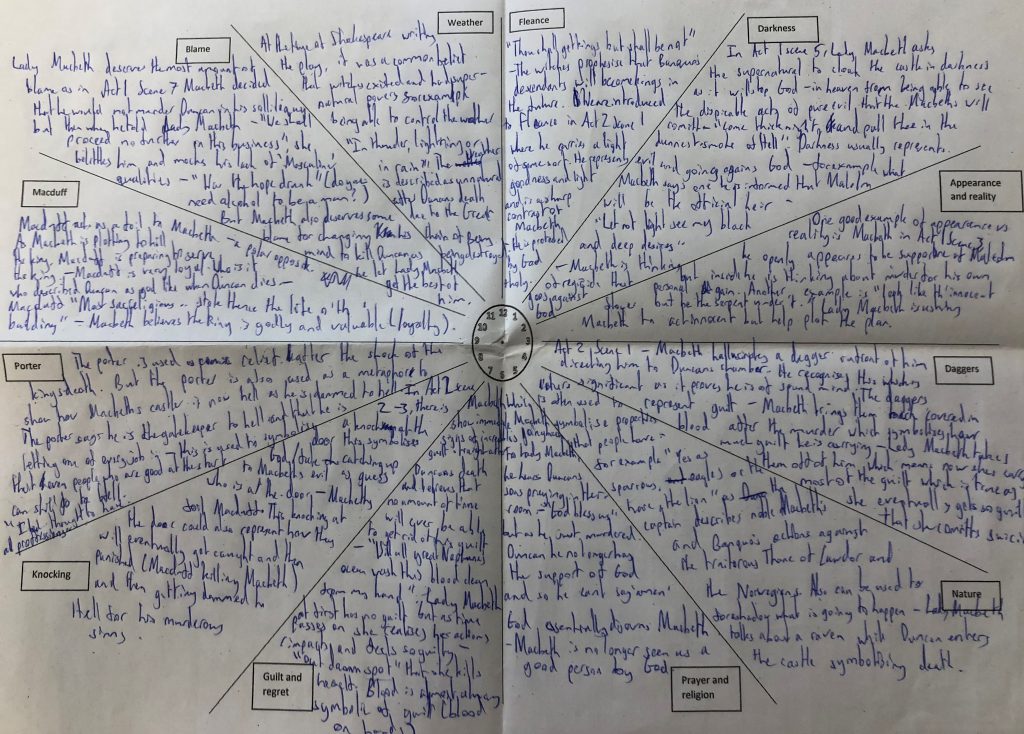 Blame
Lady Macbeth deserves the most amount of
blame as in Act 1 Scene 7 Macbeth decided
that he would not murder Duncan in his soliloquy
but then when he told Lady Macbeth - "We shall
proceed no further in this business", she
belittles him and mocks his lack of 'Masculine'
qualities - "Was the hope drunk" (do you
need alcohol to be a man?)
But Macbeth also deserves some
blame for changing his
mind to kill Duncan as
he let Lady Macbeth
get the best of
him.
Weather
At the time of Shakespeare writing
the play, it was a common belief
that witches existed and had super-
natural powers for example
being able to control the weather
"In thunder, lightning or
in rain" The weather
is described as unnatural
after Duncans death
due to the Great
Chain of Being
being destroyed
Fleance
"Thou shall get kings but shall be not"
- The witches prophesise that Banquo's
descendants will become kings in
the future. We are introduced
to Fleance in Act 2 Scene 1
where he carries a light
of some sort. He represents
goodness and light
and is a sharp
contrast of
Macbeth
by God
Darkness
In Act 1 Scene 5, Lady Macbeth asks
the supernatural to cloak the castle in darkness
as it will stop God - in heaven from being able to see
the dispicable acts of pure evil that the Macbeths will
commit "come thick night, and pall thee in the
dunnest smoke of Hell". Darkness usually represents
evil and going agains God - for example what
Macbeth says once he is informed that Malcolm
will be the official heir -
"Let not light see my black
and deep desires"
- Macbeth is thinking
of regicide that
goes against
God
Appearance
and reality
One good example of appearance vs
reality is Macbeth in Act 1 Scene 3
he openly appears to be supportive of Malcolm
but inside he is thinking about murder for his own
personal gain. Another example is "look like th'innocent
flower but be the serpent under't". Lady Macbeth is using
Macbeth to act innocent but help plot the plan.
Macduff
Macduff acts as a foil to Macbeth - a polar opposite.
As Macbeth is plotting to kill
the king, Macduff is preparing to serve
the king - Macduff is very loyal - who is it
who described Duncan as god like when Duncan dies -
Macduff "Most sacrilegious .. stole thence the life o'th'
building" - Macbeth believes the king is godly and valuable (loyalty).
12
1
2
3
4
5
6
7
8
9
10
11
Porter
The porter is used as comic relief after the shock of the
kings death. But the porter is also used as a metaphore to
show how Macbeths castle is now hell as he is damned to hell
The porter says he is the gatekeeper to hell and that he is
letting one of every job in - this is used to symbolise
that even people who are good at the start
can still go to hell.
"I had thought to have
Knocking
In Act 2 Scene
2-3, there is
a knocking at the
door this symbolises
God / fate catching up
to Macbeths evil as guess
who is at the door - Macbeths
foil Macduff. This knocking at
the door could also represent how they
will eventually get caught and then
punished (Macduff killing Macbeth)
and then getting damned to
Hell for his murderous
sins.
Guilt and
regret
Macbeth
show immediate
signs of
guilt & regret after
Duncans death
and believes that
no amount of time
will ever be able
to get rid of his guilt
- "Will all great Neptunes
ocean wash this blood clean
from my hand" - Lady Macbeth
at first has no guilt but as time
passes on she realises her actions
impact and feels so guilty -
"Out damn spot" that she kills
herself. Blood is almost always
symbolic of guilt (blood
on hands)
Prayer and
religion
While
Macbeth
is
to Lady Macbeth
he hears Duncans
sons praying in their
room - "God bless us"
but as he just murdered
Duncan he no longer has
the support of God
and so he cant say 'amen'
God essentially disowns Macbeth
- Macbeth is no longer seen as a
good person by God
Daggers
Act 2 Scene 1 - Macbeth hallucinates a dagger in front of him
directing him to Duncans chamber. He recognises this
which is significant as it proves he is of sound mind. The daggers
is often used to represent guilt - Macbeth brings them back covered in
blood after the murder which symbolises how
much guilt he is carrying - Lady Macbeth takes
them off of him which means now she carries
most of the guilt which is true as
she eventually gets so guilty
that she comitts suicide
Nature
symbolise properties
that people have -
for example "Yes as
sparrows, eagles or the
hare, the lion" as the
captain describes noble Macbeths
and Banquos actions against
the traitorous Thane of Cawdor and
the Norwegians. Also can be used to
foreshadow what is going to happen - Lady Macbeth
talks about a raven while Duncan enters
the castle symbolising death.